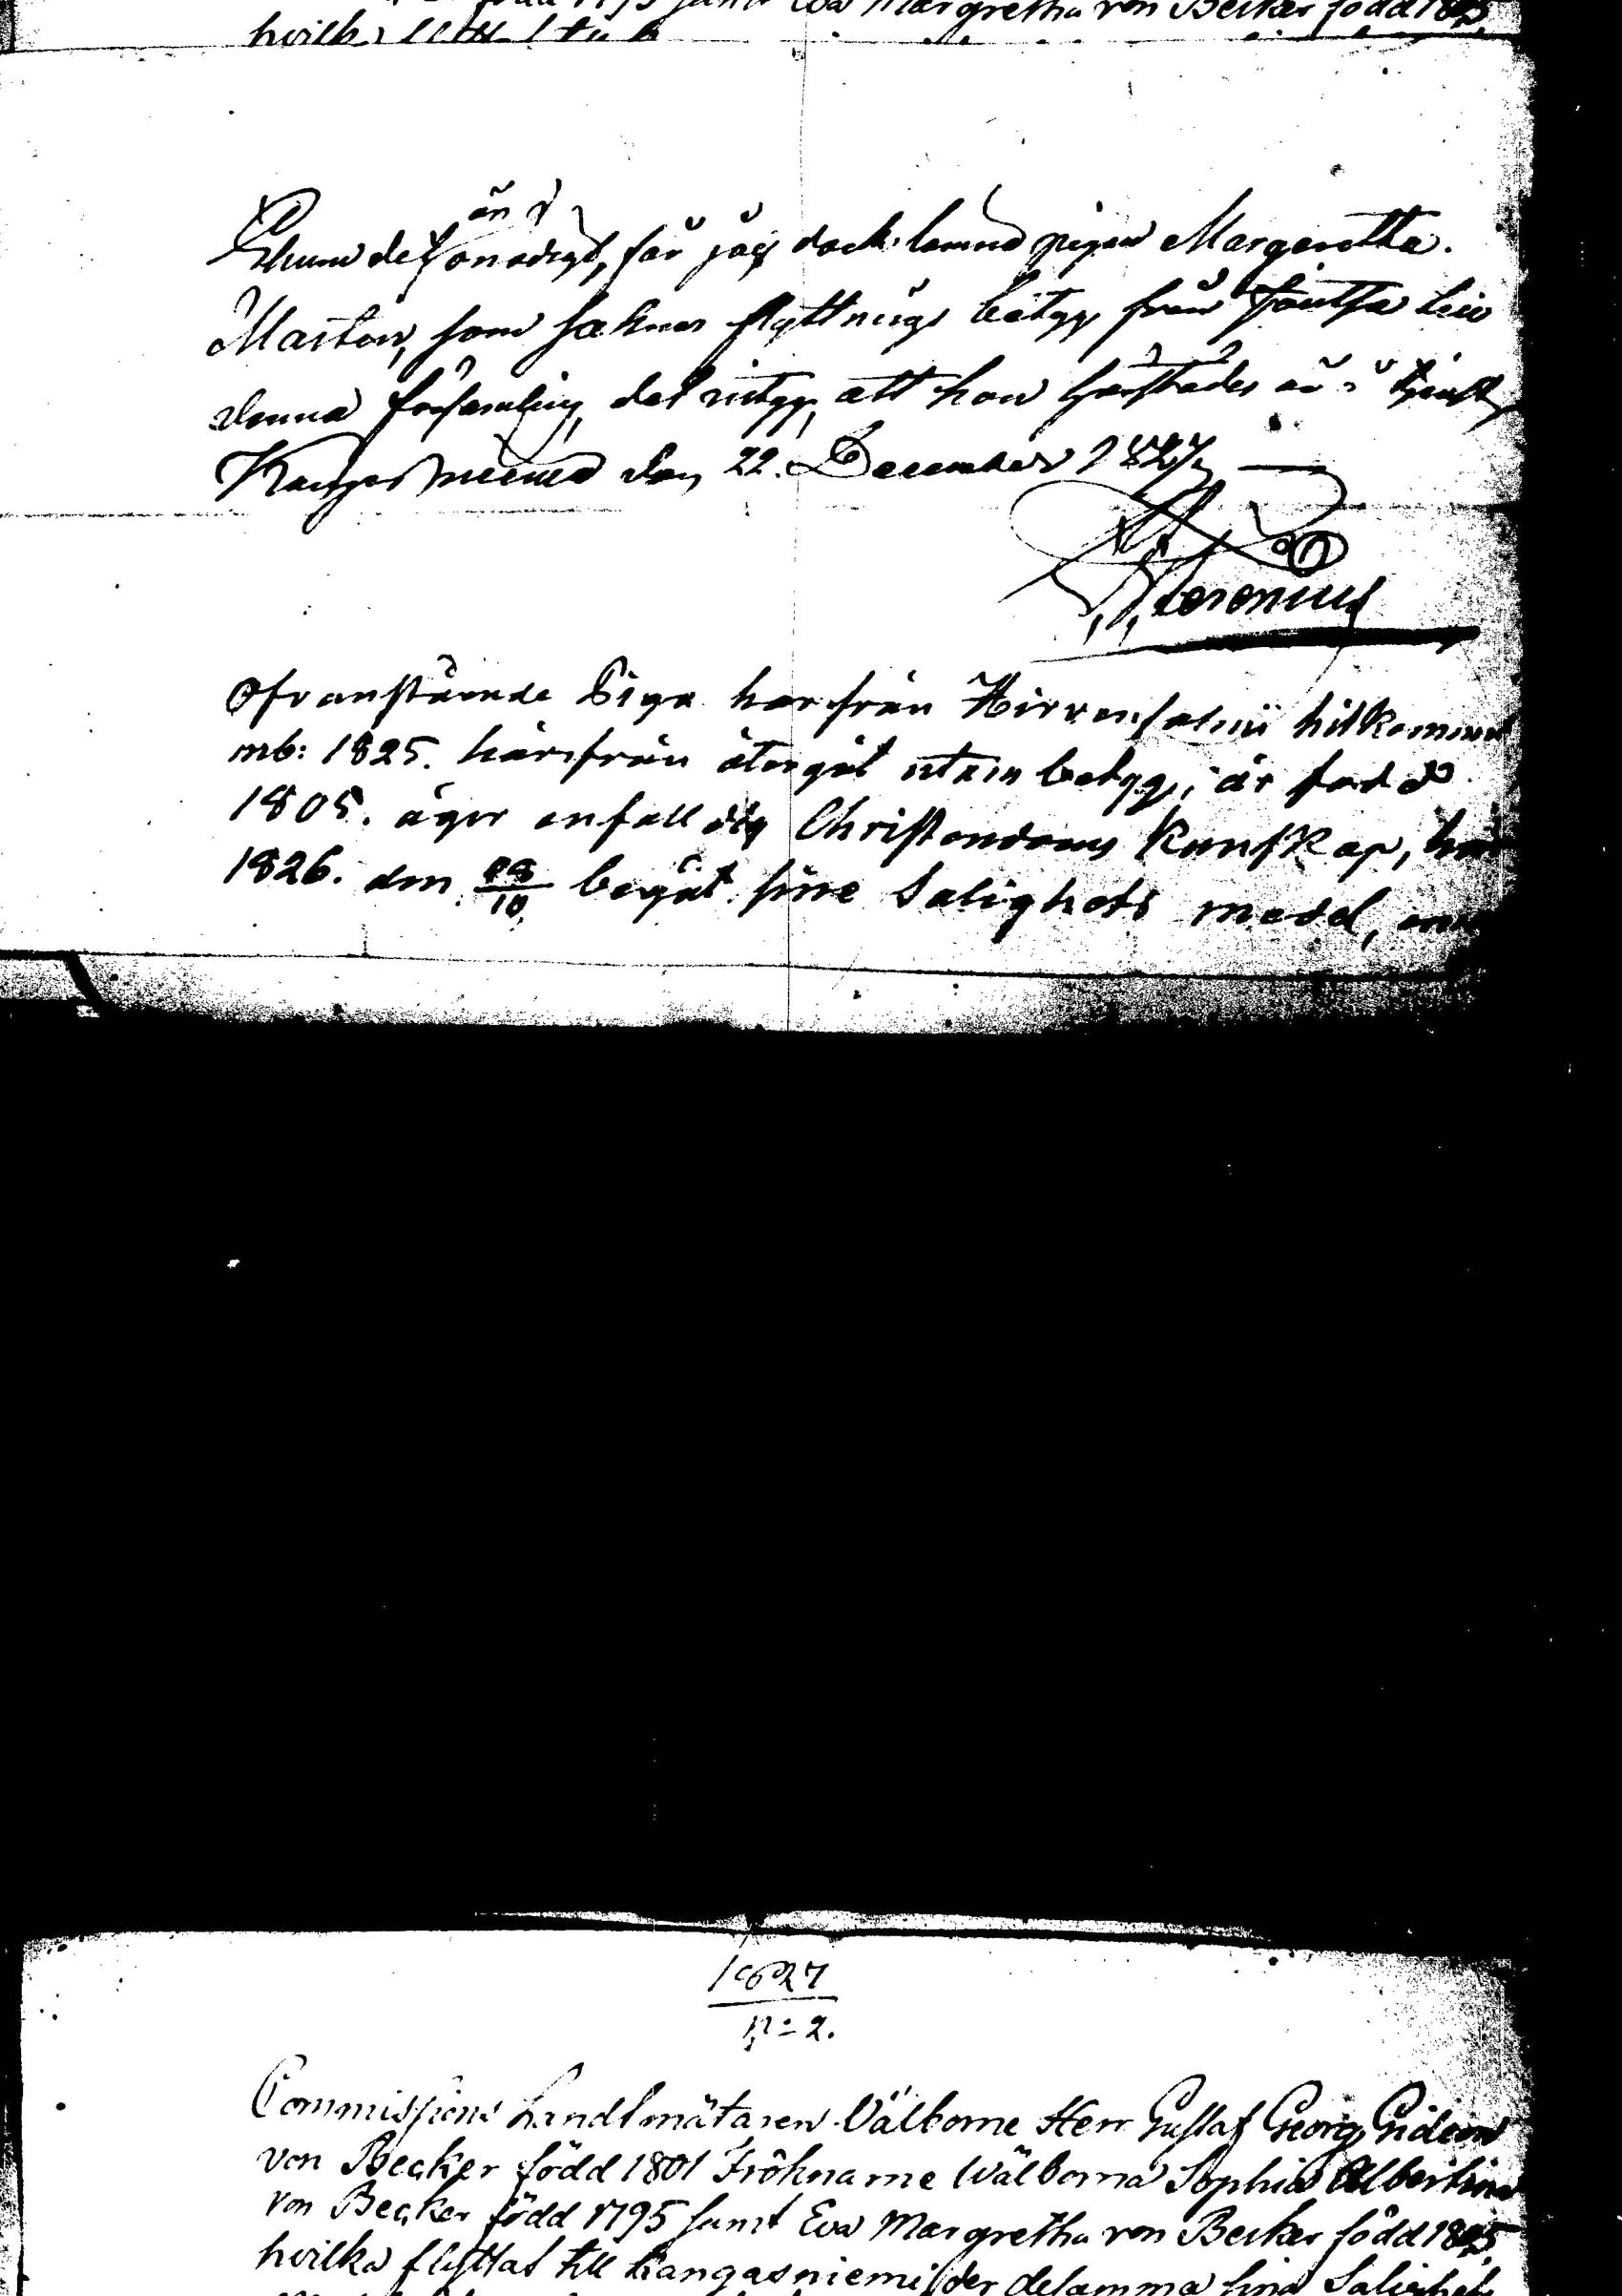 född 1795 samt Eva Margretha von Becker född 1805
hvilka
än
Ehuru det onödigt, får jag dock lemna pigan Margeretha
Maston, som saknar flyttnings betyg från Joutsa till
denna församling, det intyg, att hon härstädes är i tjenst,
Kangasniemi den 22. December 1827,
Ofvanstående Piga har från Hirvensalmi hitkommit
mb: 1825. härifrån återgåt utan betyg; är född
1805. äger enfalldig Christendoms kunskap, har
1826. den 28/10 begåt sine Salighets medel,
1827
N:2.
Commissions Landtmätaren Välborne Herr Gustaf Georg Gideon
von Becker född 1801 Fröknarne Wälborna Sophia Albertina
von Becker född 1795 samt Eva Margretha von Becker född 1805
hvilka flyttat till Kangasniemi der desamma sina Salighets